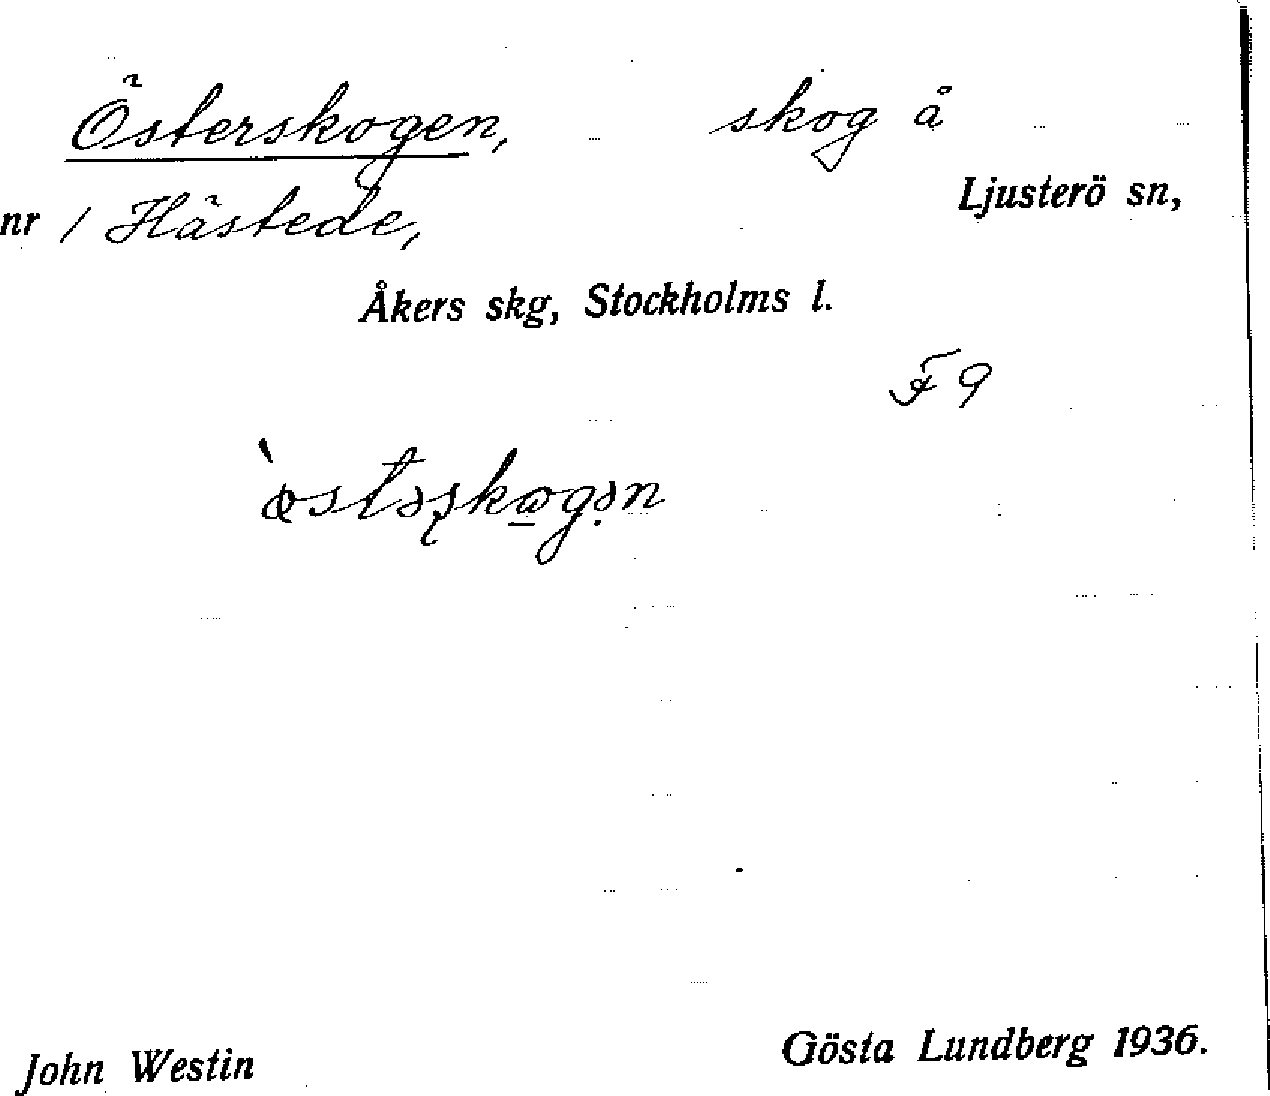 Österskogen, skog å
Ljusterö sn,
nr 1 Hästede,
Åkers skg, Stockholms l.
F 9
John Westin Gösta Lundberg 1936.